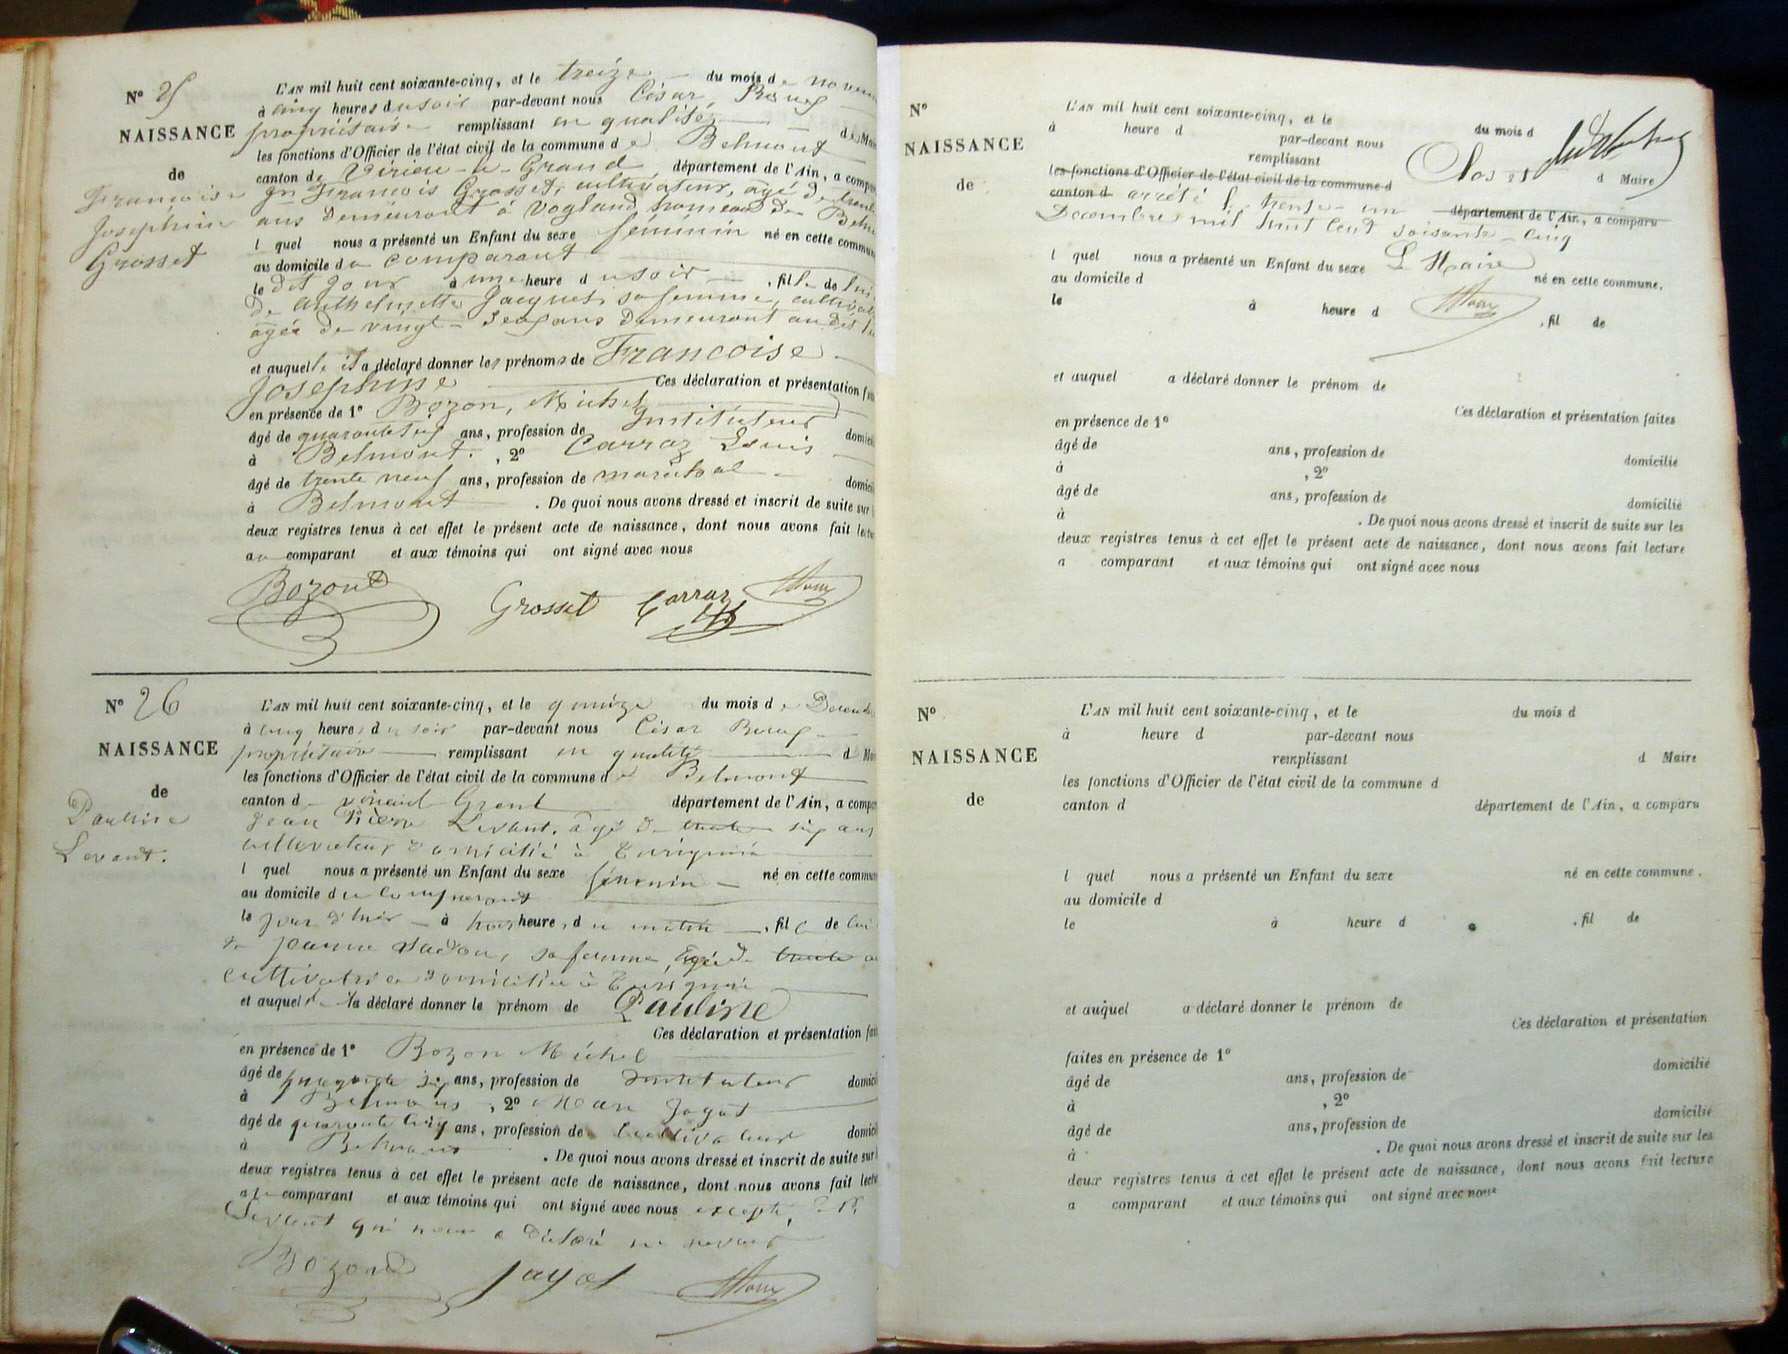 N° 25
NAISSANCE
de
Françoise
Joséphine
Grosset
L'AN mil huit cent soixante-cinq, et le treize du mois de
à cinq heures du soir par-devant nous César
propriétaire remplissant en qualité de Maire
les fonctions d'Officier de l'état civil de la commune de Belmont
canton de Virieu-le-Grand département de l'Ain, a comparu
François Grosset, cultivateur, âgé de
ans demeurant à Vogland hameau de
l quel nous a présenté un Enfant du sexe féminin né en cette commune
au domicile du comparant
le dit jour à une heure du soir, fille de lui
de Anthelmette Jacquet, sa femme,
agée de vingt- ans demeurant au dit
et auquelle il a déclaré donner les prénoms de Francoise
Josephine Ces déclaration et présentation
en présence de 1° Bozon, Michel
âgé de ans, profession de Instituteur
à Belmont, 2° Carraz Louis
âgé de trente neuf ans, profession de maréchal
à Belmont. De quoi nous avons dressé et inscrit de suite sur
deux registres tenus à cet effet le présent acte de naissance, dont nous avons fait
au comparant et aux témoins qui ont signé avec nous
Bozon Grosset Carraz
N° 26
NAISSANCE
de
Pauline
Levant.
L'AN mil huit cent soixante-cinq, et le quinze du mois de
à cinq heures du soir par-devant nous César
propriétaire remplissant en qualité
les fonctions d'Officier de l'état civil de la commune de Belmont
canton de département de l'Ain, a
Jean Pierre Levant, âgé de trente six ans
cultivateur domicilié à
l quel nous a présenté un Enfant du sexe féminin né en cette commune
au domicile du comparant
le jour d'hier à trois heures du matin, fille de lui
de Jeanne sa femme, âgée de trente
cultivatrice domiciliée à
et auquelle il a déclaré donner le prénom de Pauline
Ces déclaration et présentation
en présence de 1° Bozon Michel
âgé de quarante six ans, profession de Instituteur
à Belmont, 2° Marc Jayot
âgé de quarante cinq ans, profession de Cultivateur
à Belmont. De quoi nous avons dressé et inscrit de suite sur
deux registres tenus à cet effet le présent acte de naissance, dont nous avons fait
au comparant et aux témoins qui ont signé avec nous excepté
Levant qui nous a déclaré ne savoir
Bozon Jayot
N°
NAISSANCE
de
L'AN mil huit cent soixante-cinq, et le du mois d
à heure d par-devant nous
remplissant Clos et d Maire
les fonctions d'Officier de l'état civil de la commune d
canton d arrêté le trente-un département de l'Ain, a comparu
Decembre mil huit cent soixante-cinq
l quel nous a présenté un Enfant du sexe Le Maire né en cette commune.
au domicile d
le à heure d , fil de
et auquel a déclaré donner le prénom de
Ces déclaration et présentation faites
en présence de 1°
âgé de ans, profession de domicilié
à , 2°
âgé de ans, profession de domicilié
à . De quoi nous avons dressé et inscrit de suite sur les
deux registres tenus à cet effet le présent acte de naissance, dont nous avons fait lecture
a comparant et aux témoins qui ont signé avec nous
N°
NAISSANCE
de
L'AN mil huit cent soixante-cinq, et le du mois d
à heure d par-devant nous
remplissant d Maire
les fonctions d'Officier de l'état civil de la commune d
canton d département de l'Ain, a comparu
l quel nous a présenté un Enfant du sexe né en cette commune.
au domicile d
le à heure d , fil de
et auquel a déclaré donner le prénom de
Ces déclaration et présentation
faites en présence de 1°
âgé de ans, profession de domicilié
à , 2°
âgé de ans, profession de domicilié
à . De quoi nous avons dressé et inscrit de suite sur les
deux registres tenus à cet effet le présent acte de naissance, dont nous avons fait lecture
a comparant et aux témoins qui ont signé avec nous